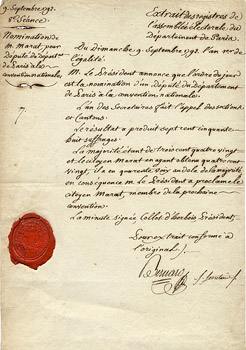 9. Septembre 1792.
8e Séance
Nomination de
M. Marat, pour
député du départ.
de Paris à la
convention nationale.
7.
Extrait des registres de
l'assemblée Electorale du
Département de Paris.
Du Dimanche 9. Septembre 1792. l'an 1er de
l'égalité.
M. Le Président annonce que l'ordre du jour
est la nomination d'un député du Département
de Paris à la convention nationale.
L'un des Secretaires fait l'appel des sections
et Cantons.
Le resultat a produit sept cent cinquante
huit suffrages.
La majorité étant de trois cent quatre vingt
et le citoyen Marat en ayant obtenu quatre cent
vingt, il a eu quarante voix au delà de la majorité
en conséquence M. le Président a proclamé le
citoyen Marat, membre de la prochaine
convention.
La minute signée Collot d'herbois Président.
Pour extrait conforme à
l'original.